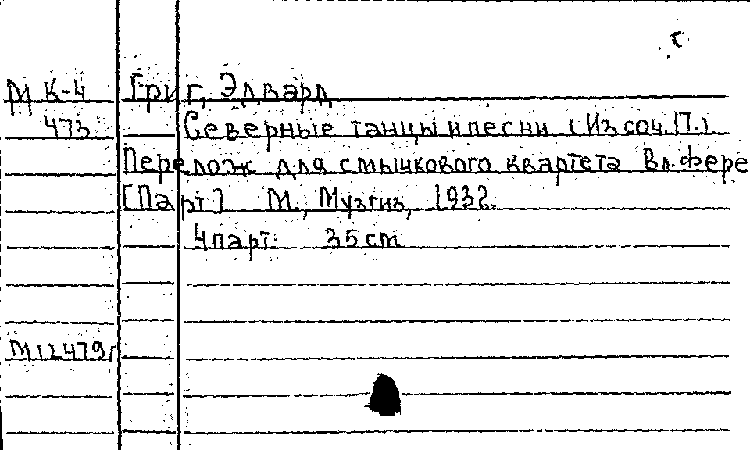 г
М К-4 Григ, Эдвард
473 Северные танцы и песни (Из соч. 17.)
Перелож для смычкового квартета Вл. Фере
[Парт] М., Музгиз, 1932.
4 парт. 35 cm
М 12479